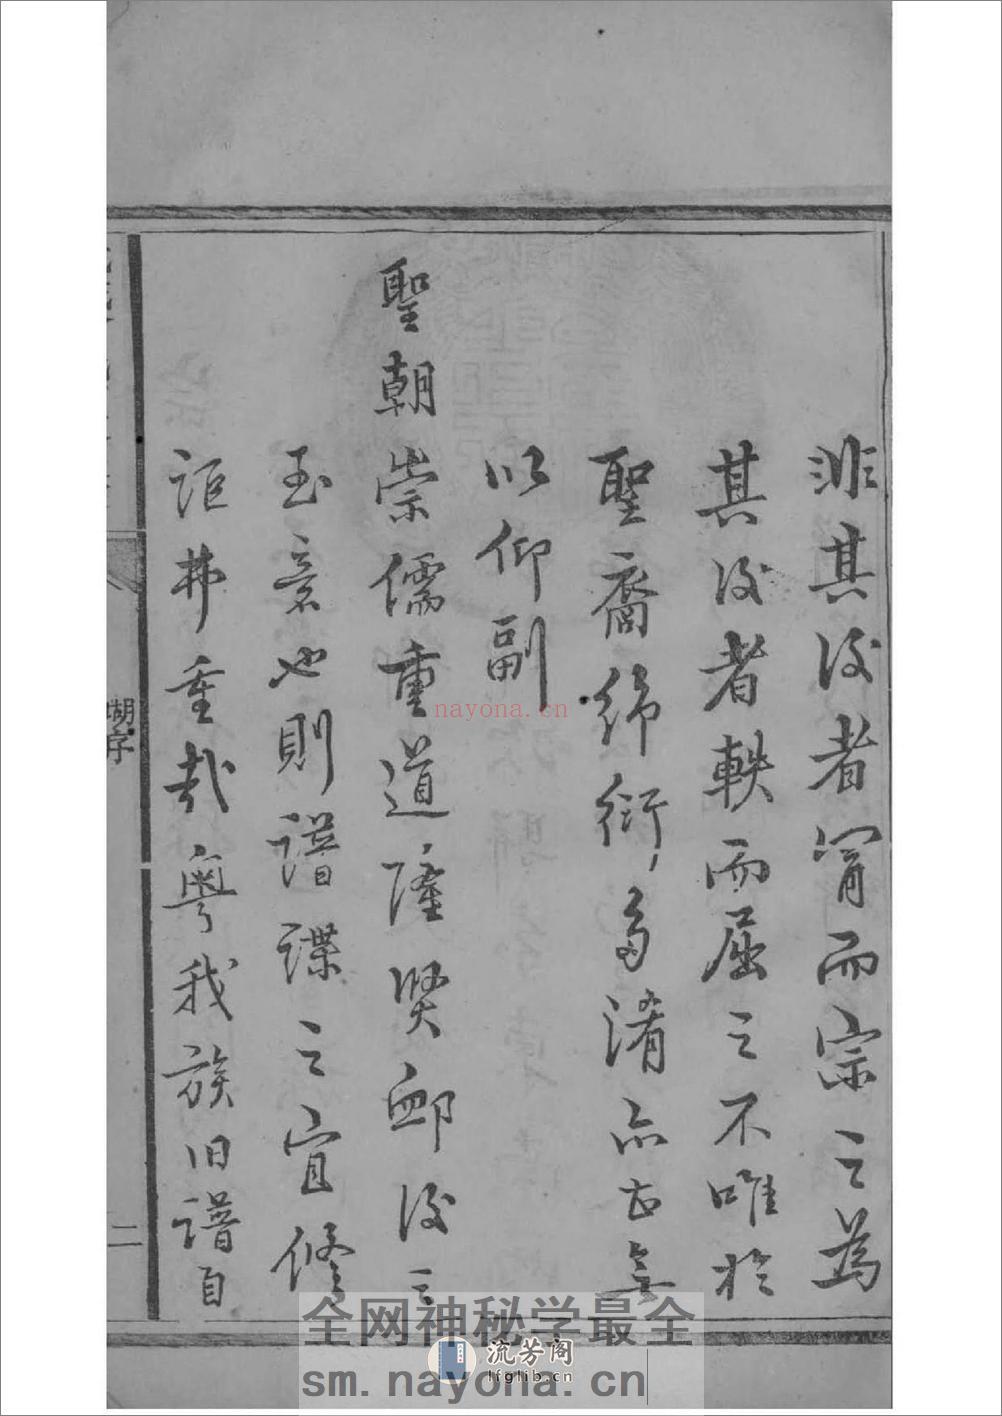 非其後者冐而宗之為
其後者軼而屈之不唯於
聖裔綿衍多淆亦且無
以仰副
聖朝崇儒重道隆賢卹後之
至意也則譜諜之宜修
詎弗重哉粵我族旧譜自
瑚字
二
nayona.cn
全网神秘学最全
流芳阁
lfglib.cn
sm.nayona.cn